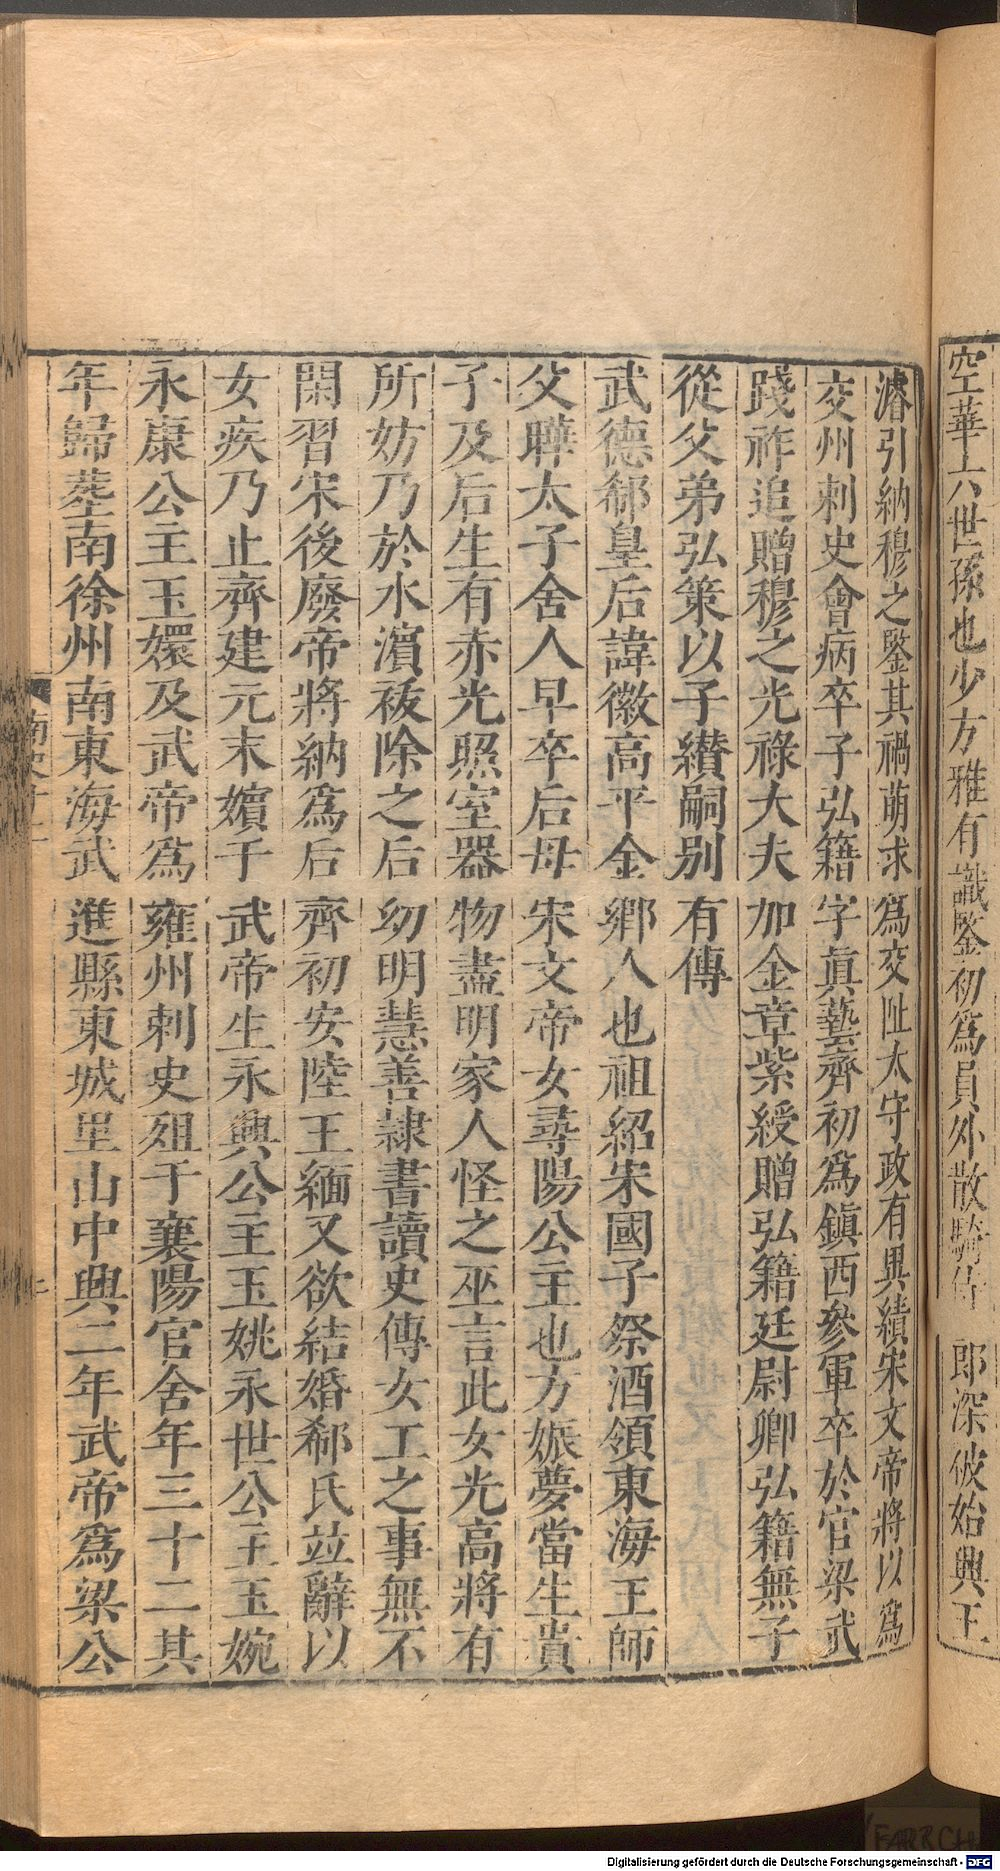 空華六世孫也少方雅有識鑒初為員外散騎侍郎深被始興王
濬引納穆之鑒其禍萌求為交阯太守政有異績宋文帝將以為
交州刺史會病卒子弘籍字眞藝齊初為鎮西參軍卒於官梁武
踐祚追贈穆之光祿大夫加金章紫綬贈弘籍廷尉卿弘籍無子
從父弟弘策以子纘嗣別有傳
武德郗皇后諱徽高平金鄉人也祖紹宋國子祭酒領東海王師
父曄太子舍人早卒后母宋文帝女尋陽公主也方娠夢當生貴
子及后生有赤光照室器物盡明家人怪之巫言此女光高將有
所妨乃於水濱祓除之后幼明慧善隷書讀史傳女工之事無不
閑習宋後廢帝將納為后齊初安陸王緬又欲結婚郗氏竝辭以
女疾乃止齊建元末嬪于武帝生永興公主玉姚永世公主玉婉
永康公主玉嬛及武帝為雍州刺史殂于襄陽官舍年三十二其
年歸葬南徐州南東海武進縣東城里山中興二年武帝為梁公
南史十二
Digitalisierung gefördert durch die Deutsche Forschungsgemeinschaft - DFG